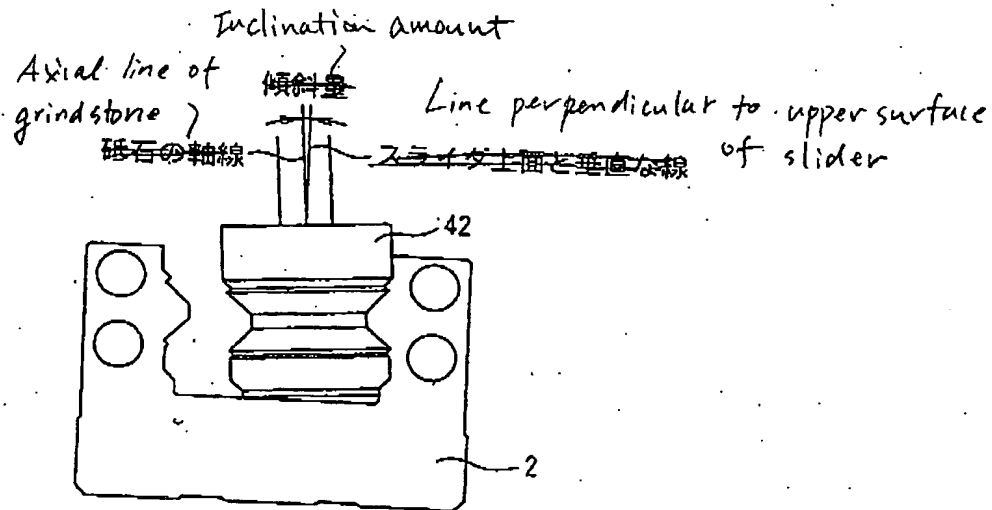 Inclination amount
傾斜量
Axial line of
grindstone
砥石の軸線
Line perpendicular to upper surface
of slider
スライダ上面と垂直な線
42
2